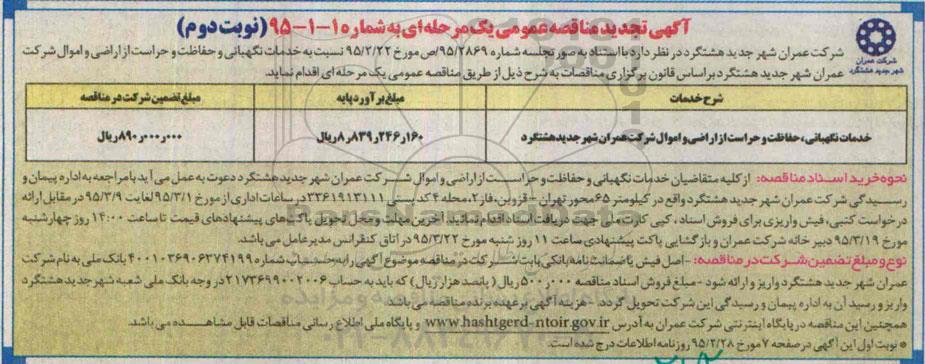 آگهی تجدید مناقصه عمومی یک مرحله‌ای به شماره ۱-۱-۹۵ (نوبت دوم)
شرکت عمران
شهر جدید هشتگرد
شرکت عمران شهر جدید هشتگرد در نظر دارد با استناد به صورتجلسه شماره ۹۵/۲۸۶۹/ص مورخ ۹۵/۲/۲۲ نسبت به خدمات نگهبانی و حفاظت و حراست از اراضی و اموال شرکت
عمران شهر جدید هشتگرد بر اساس قانون برگزاری مناقصات به شرح ذیل از طریق مناقصه عمومی یک مرحله‌ای اقدام نماید.
شرح خدمات
مبلغ برآورد پایه
مبلغ تضمین شرکت در مناقصه
خدمات نگهبانی، حفاظت و حراست از اراضی و اموال شرکت عمران شهر جدید هشتگرد
۸٫۸۳۹٫۲۴۶٫۱۶۰ ریال
۸۹۰٫۰۰۰٫۰۰۰ ریال
نحوه خرید اسناد مناقصه: از کلیه متقاضیان خدمات نگهبانی و حفاظت و حراست از اراضی و اموال شرکت عمران شهر جدید هشتگرد دعوت به عمل می‌آید با مراجعه به اداره پیمان و
رسیدگی شرکت عمران شهر جدید هشتگرد واقع در کیلومتر ۶۵ محور تهران - قزوین، فاز ۲، محله ۴ کد پستی ۳۳۶۱۹۱۳۱۱۱ در ساعات اداری از مورخ ۹۵/۳/۱ لغایت ۹۵/۳/۹ در مقابل ارائه
درخواست کتبی، فیش واریزی برای فروش اسناد، کپی کارت ملی جهت دریافت اسناد اقدام نمائید. آخرین مهلت و محل تحویل پاکت‌های پیشنهادهای قیمت تا ساعت ۱۴:۰۰ روز چهارشنبه
مورخ ۹۵/۳/۱۹ دبیرخانه شرکت عمران و بازگشایی پاکت پیشنهادی ساعت ۱۱ روز شنبه مورخ ۹۵/۳/۲۲ در اتاق کنفرانس مدیر عامل می‌باشد.
نوع و مبلغ تضمین شرکت در مناقصه: - اصل فیش یا ضمانت نامه بانکی بابت شرکت در مناقصه موضوع آگهی را به حساب شماره ۴۰۰۱۰۳۶۹۰۶۳۷۴۱۹۹ بانک ملی به نام شرکت
عمران شهر جدید هشتگرد واریز و ارائه شود - مبلغ فروش اسناد مناقصه ۵۰۰٫۰۰۰ ریال (پانصد هزار ریال) که باید به حساب ۲۱۷۳۶۹۹۰۰۲۰۰۶ در وجه بانک ملی شعبه شهر جدید هشتگرد
واریز و رسید آن به اداره پیمان و رسیدگی این شرکت تحویل گردد - هزینه آگهی برعهده برنده مناقصه می‌باشد
همچنین این مناقصه در پایگاه اینترنتی شرکت عمران به آدرس www.hashtgerd-ntoir.gov.ir و پایگاه ملی اطلاع رسانی مناقصات قابل مشاهده می باشد.
* نوبت اول این آگهی در صفحه ۷ مورخ ۹۵/۲/۲۸ روزنامه اطلاعات درج شده است.